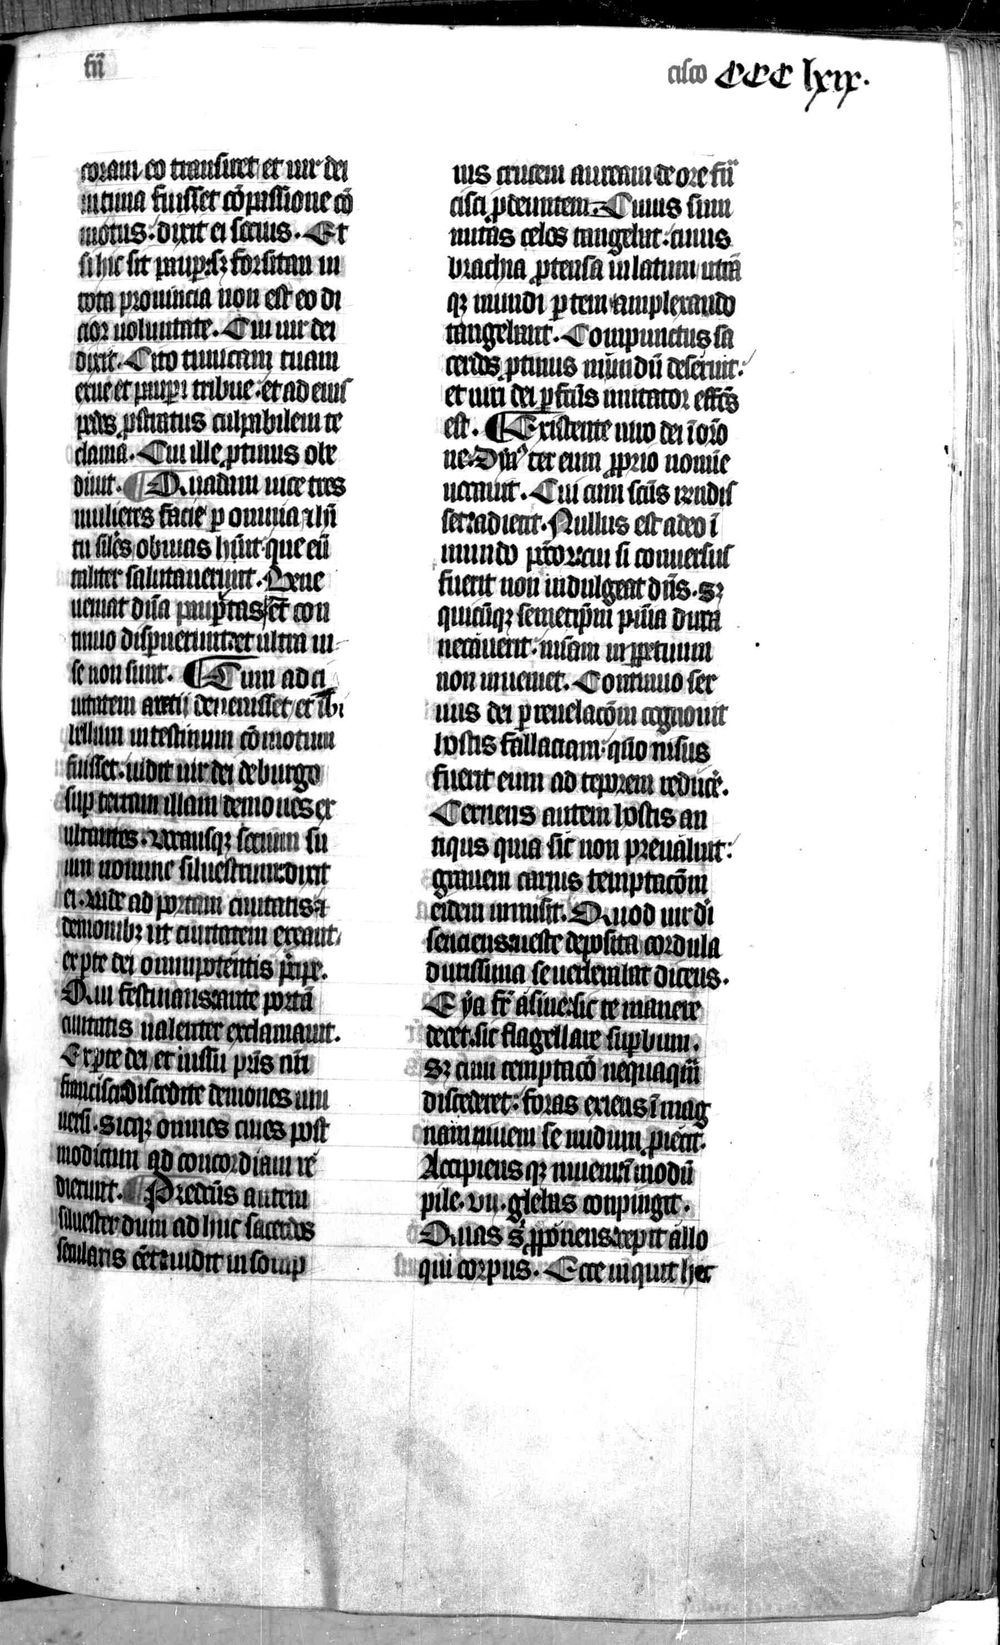 fra͞
cisco CCC lxix.
coram eo transiret et uir dei
intima fuisset co͞passione co͞
motus: dixit ei socius. Et
si hic sit paup: sꝫ forsitan in
tota prouincia non est eo di
cior uoluntate. Cui uir dei
dixit. Cito tunicam tuam
exue et paupi tribue. et ad eius
pedes ꝓstratus culpabilem te
clama. Cui ille ꝓtinus obe
diuit. ¶ Quadam uice tres
mulieres facie ꝑ omnia ⁊ habi͞
tu siles obuias huit. que eu͞
taliter salutauerunt. Bene
ueniat dn͞a paup͞tas. et con
tinuo disparuerunt. et ultra ui-
se non sunt. ¶ Cum ad ci
uitatem aretij deuenisset / et ibi
bellum intestinum co͞motum
fuisset. uidit uir dei de burgo
sup terram illam demones ex
ultantes. uocansqꝫ socium su
um nomine siluestrum dixit
ei. uade ad portam ciuitatis ⁊
demonibꝫ ut ciuitatem exeant.
ex pte dei omnipotentis p͞cipe.
Qui festinans ante porta͞
ciuitatis ualenter exclamauit.
Ex pte dei et iussu pr͞is nr͞i
francisci discedite demones uni
uersi. Sicqꝫ omnes ciues post
modicum ad concordiam re
dierunt. ¶ Predcus autem
siluester dum adhuc sacerdos
secularis eet: uidit in somp
nis crucem auream de ore fra͞
cisci ꝓdeuntem. Cuius sum
mitas celos tangebat. cuius
brachia ꝓtensa in latum utra͞
qꝫ mundi ptem amplexando
tangebant. Compunctus sa
cerdos ꝓtinus mundu͞ deseruit:
et uiri dei ꝑfcus imitator effcus
est. ¶ Existente uiro dei i͞ oro͞
ne. Dyab ter eum ꝓprio nomine
uocauit. Cui cum scu͞s respondis
set: addidit. Nullus est adeo i͞
mundo pcto͞r cui si conuersus
fuerit non indulgeat dn͞s. Sꝫ
quicu͞qꝫ semetipsm pn͞ia dura
necauerit. mi͞am in ꝑpetuum
non inueniet. Continuo ser
uus dei ꝑ reuelaco͞m cognouit
hostis fallaciam. quo nisus
fuerit eum ad teporem reduce͞.
Cernens autem hostis an
tiqus quia sic non preualuit:
grauem carnis temptaco͞m
eidem inmisit. Quod uir di
senciens: ueste deposita cordula
durissima se uerberabat dicens.
Eya fr͞ asine. sic te manere
decet. sic flagellare supbum.
Sꝫ cum temptaco͞ nequaqua͞
discederet: foras exiens i͞ mag
nam niuem se nudum ꝓiecit.
Accipiens qꝫ niuem i͞ modu͞
pile. vij. glebas conpingit.
Quas s͞ ꝓpo͞nens: cepit allo
qui corpus. Ecce inquit hec